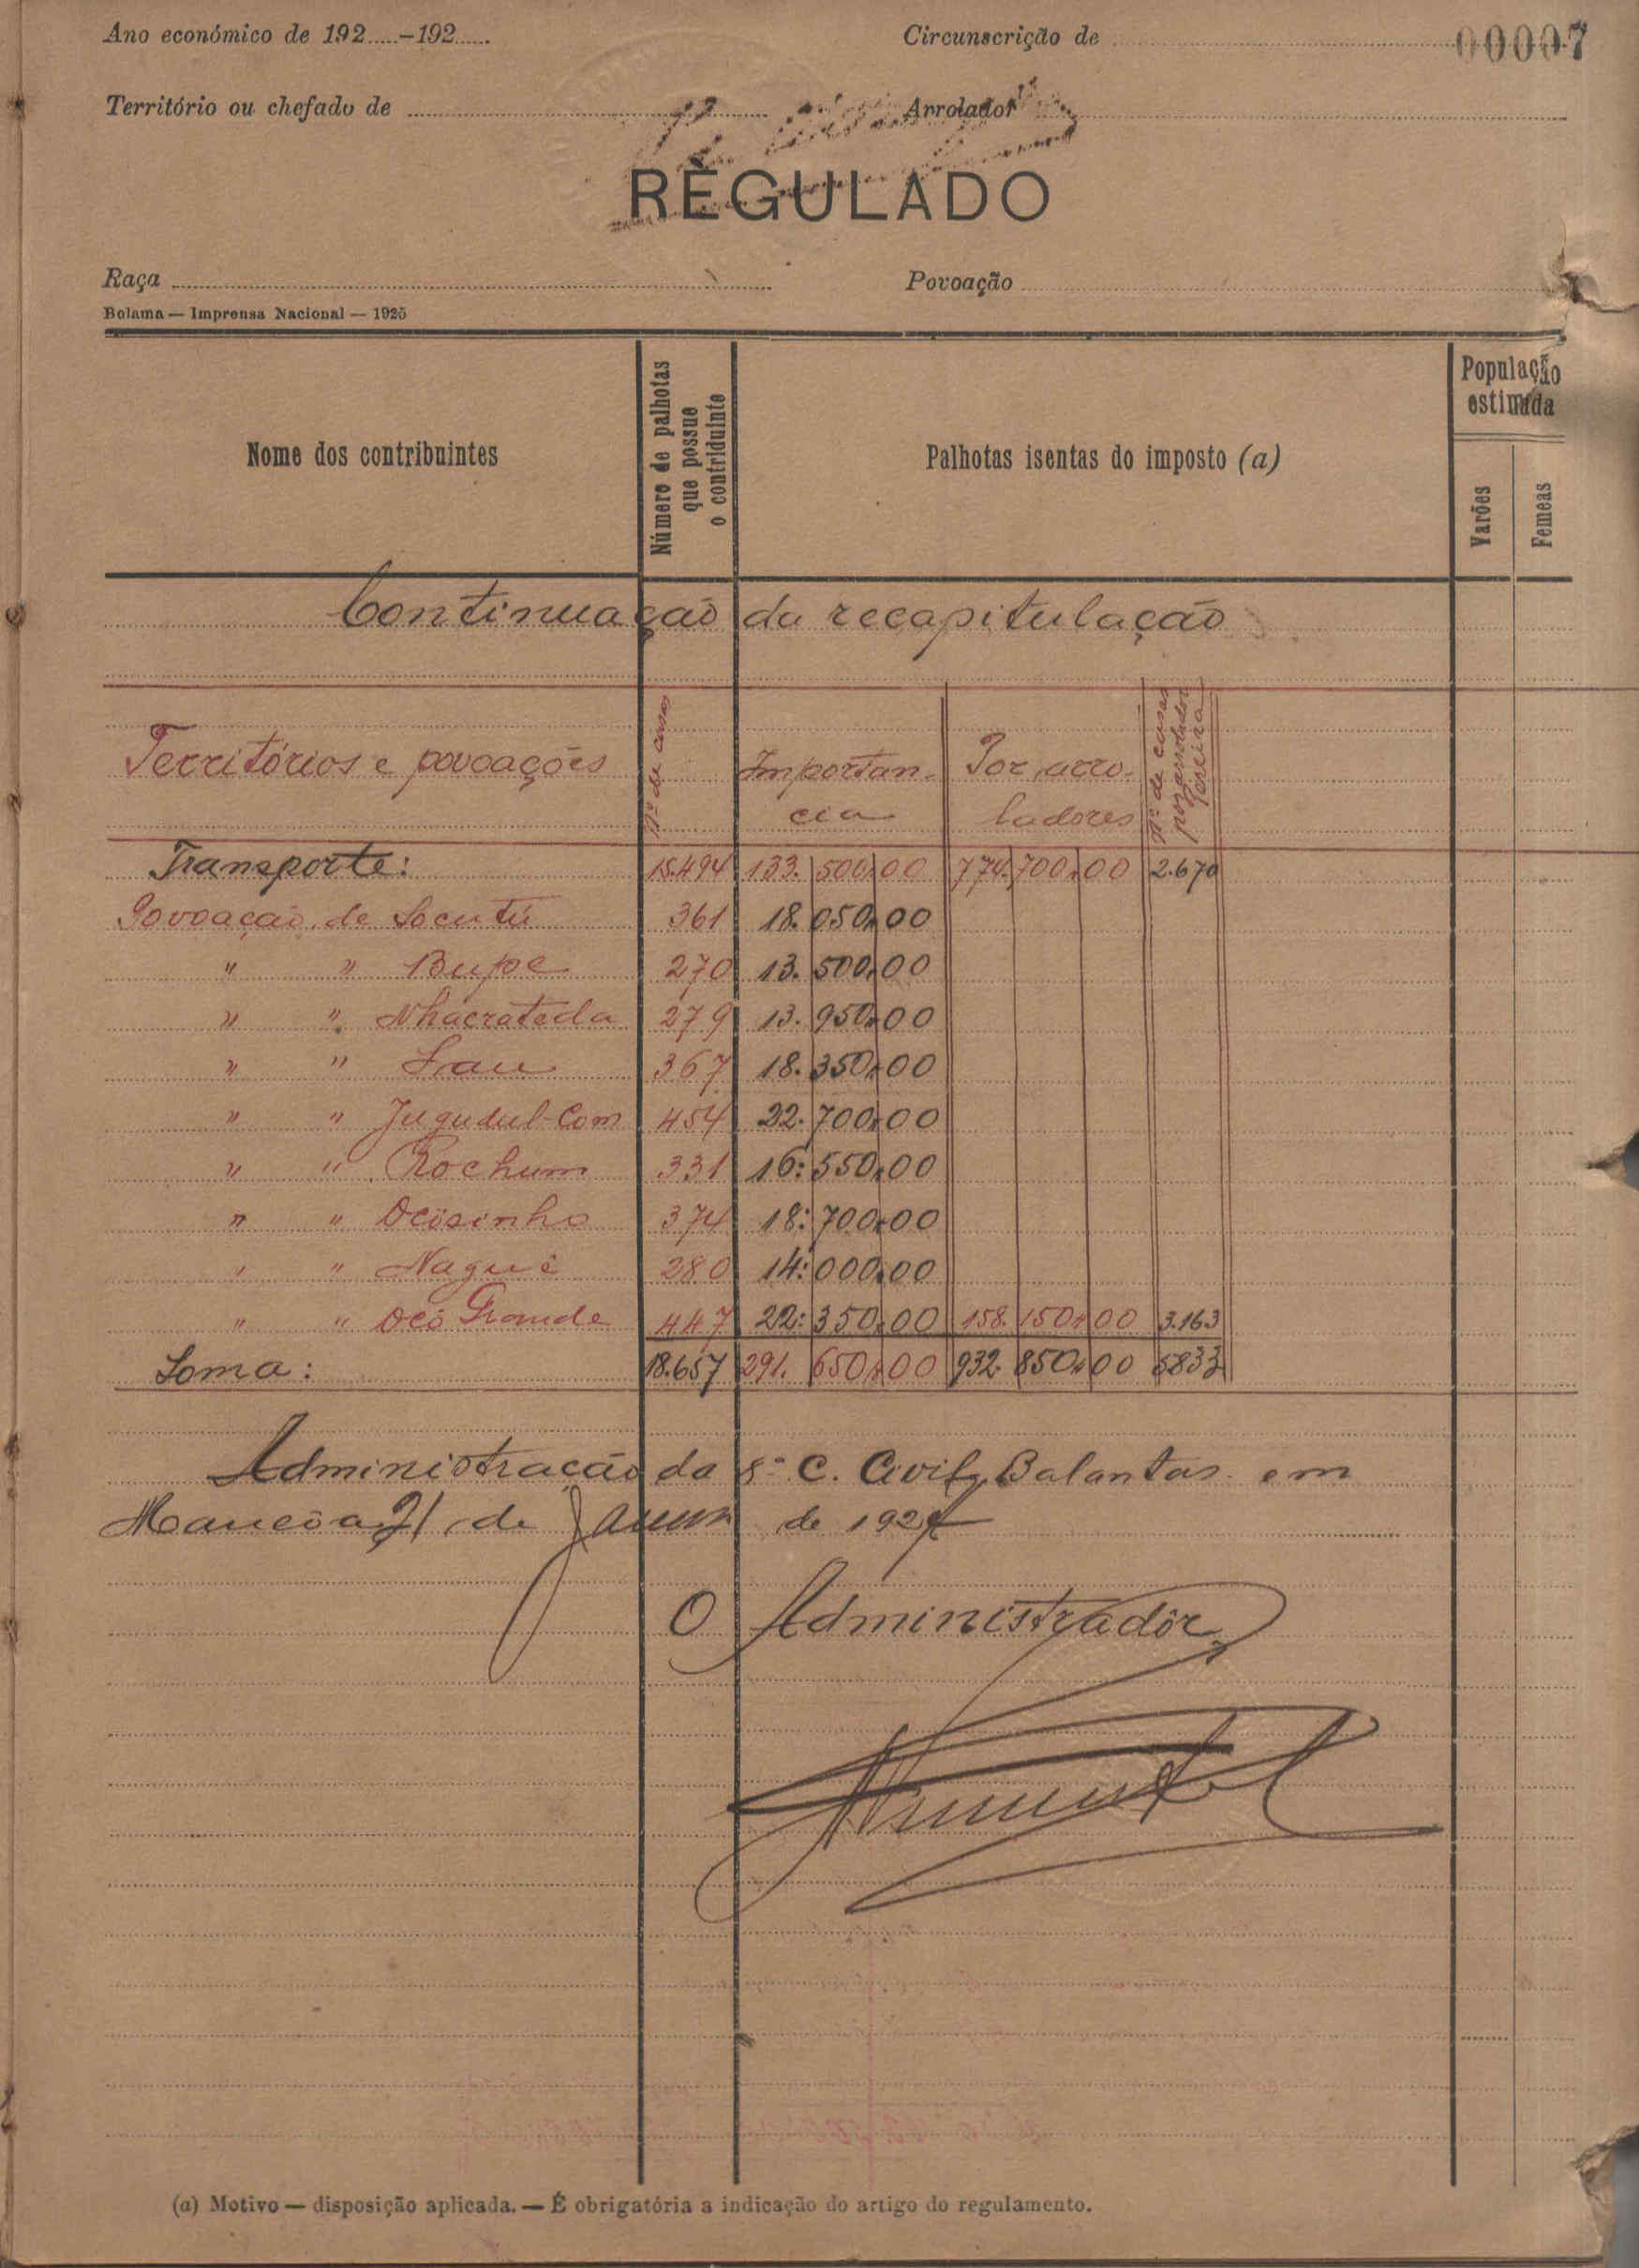 Ano económico de 192.....-192......
Circunscrição de
00007
Território ou chefado de
Arrolador
REGULADO
Raça
Povoação
Bolama — Imprensa Nacional — 1925
Nome dos contribuintes
Número de palhotas que possue o contriduinte
Palhotas isentas do imposto (a)
População estimada
Varões
Femeas
Continuação da recapitulação
Territórios e povoações
Nº de casas
Importancia
Por arroladores
Nº de casas por arrolador
Transporte: 15.494 133.500,00 774.700,00 2.670
Povoação de Locutú 361 18.050,00
" " Bupe 270 13.500,00
" " Nhacrateda 279 13.950,00
" " Lau 367 18.350,00
" " Jugudul-Com 454 22.700,00
" " Rochum 331 16:550,00
" " Ocösinho 374 18:700,00
" " Naguê 280 14:000,00
" " Ocö Grande 447 22:350,00 158.150,00 3.163
Soma: 18.657 291.650,00 932.850,00 5833
Administração da 8ª C. Civil, Balantas em
Mansôa, 21 de de 1927
O Administradôr
(a) Motivo — disposição aplicada. — É obrigatória a indicação do artigo do regulamento.